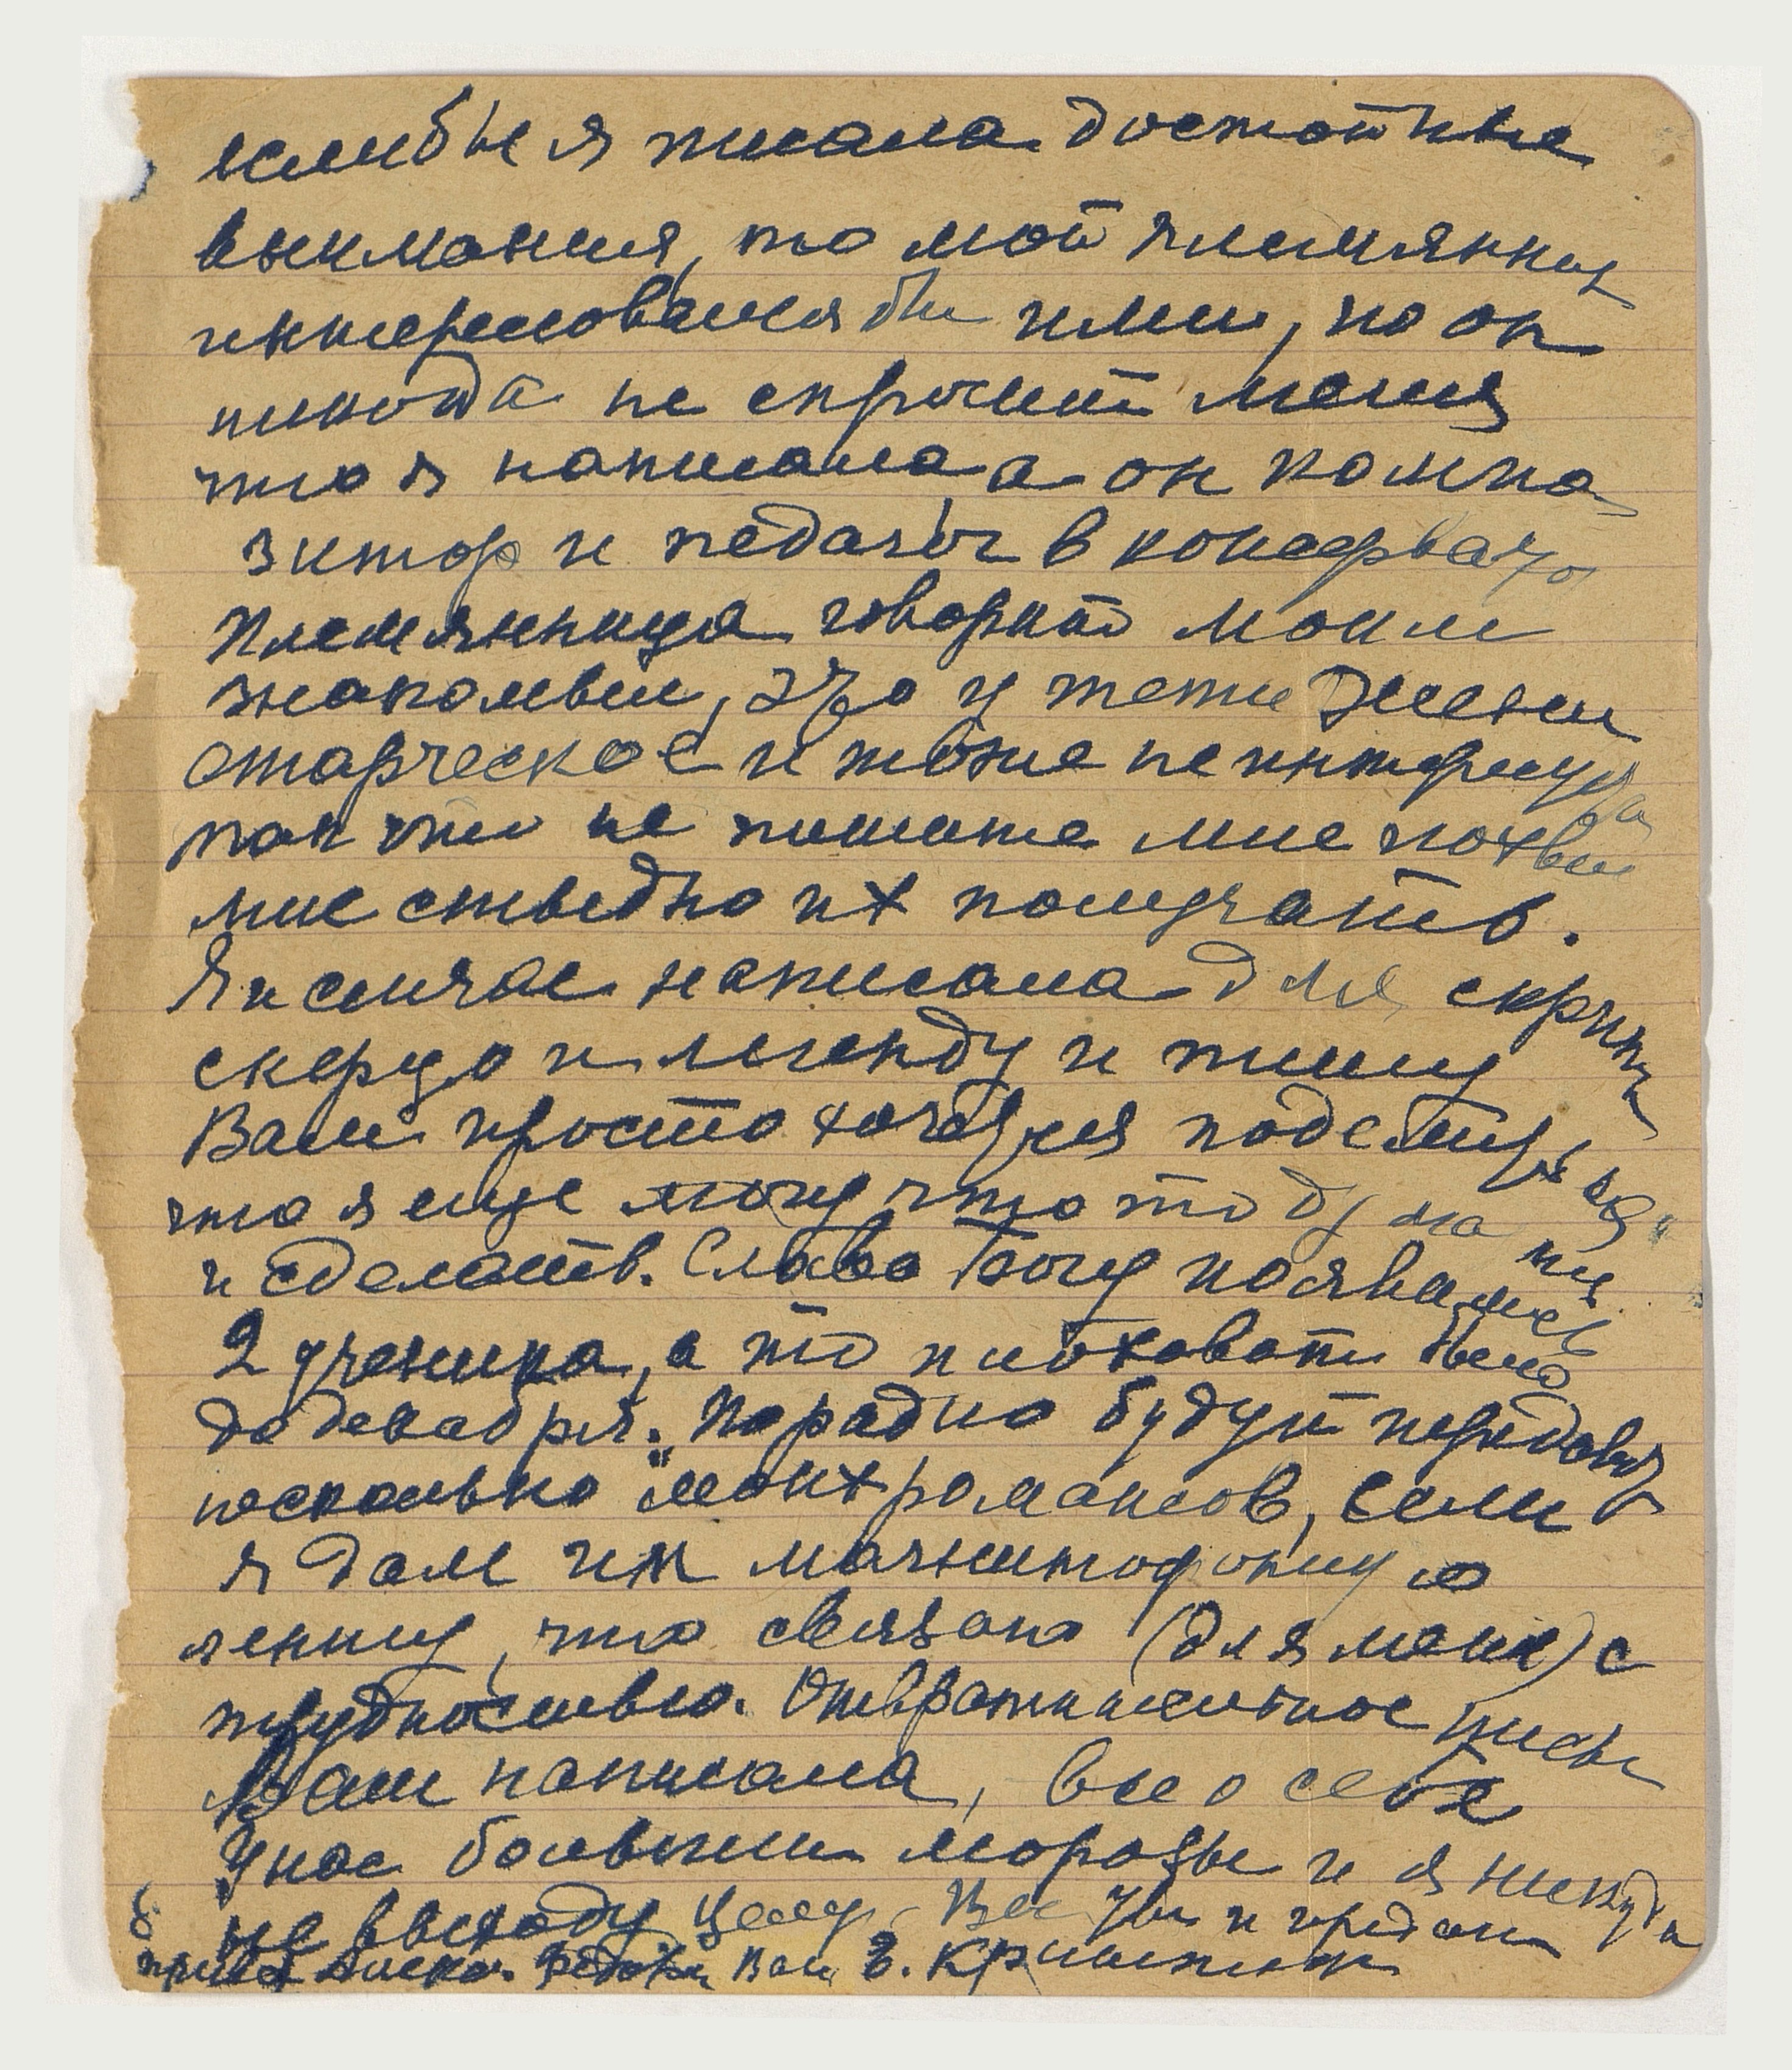 если бы я писала достойные
внимания, то мой племянник
интересовался бы ими, но он
никогда не спросит меня
что я написала, а он компо
зитор и педагог в консервато
Племянница говорит моим
знакомым, что у тети Жени
старческое и тоже не интересуется
так что не пишите мне похвал
мне стыдно их получать.
Я и сейчас написала для скрипки
скерцо и легенду и пишу
Вам просто хочется поделиться
что я еще могу что то думать
и сделать. Слава Богу появились
2 ученика, а то никого
до декабря. По радио будут передавать
несколько моих романсов, если
я дам им магнитофонную
ленту, что связано (для меня) с
трудностью. Отвратительное письмо
Вам написала, все о себе
У нас большие морозы и я никуда
не выхожу Целую Вас и предана
привет Ваша Е.